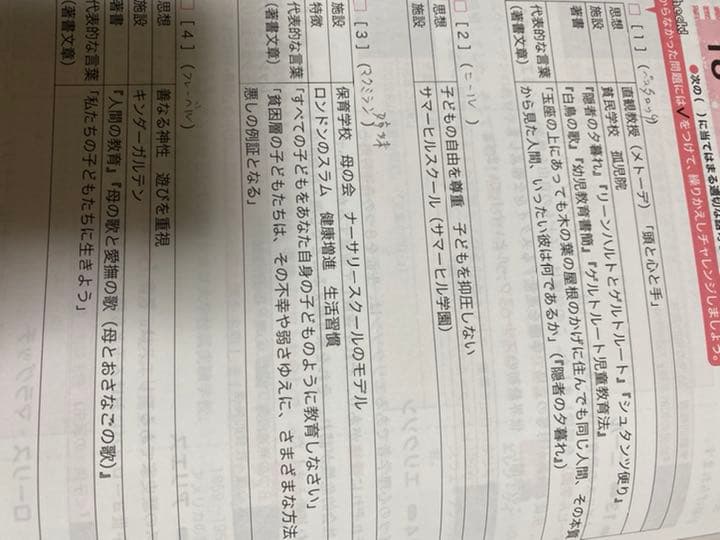 ●次の( )に当てはまる適切な
からなかった問題には✓をつけて、繰りかえしチャレンジしましょう。
□【1】(ペスタロッチ)
思想 直観教授(メトーデ)「頭と心と手」
施設 貧民学校 孤児院
著書 『隠者の夕暮れ』『リーンハルトとゲルトルート』『シュタンツ便り』
『白鳥の歌』『幼児教育書簡』『ゲルトルート児童教育法』
代表的な言葉 「玉座の上にあっても木の葉の屋根のかげに住んでも同じ人間、その本質
(著書文章) から見た人間、いったい彼は何であるか」(『隠者の夕暮れ』)
□【2】(ニール)
思想 子どもの自由を尊重 子どもを抑圧しない
施設 サマーヒルスクール(サマーヒル学園)
□【3】(マクミラン)
施設 保育学校 母の会 ナーサリースクールのモデル
特徴 ロンドンのスラム 健康増進 生活習慣
代表的な言葉 「すべての子どもをあなた自身の子どものように教育しなさい」
(著書文章) 「貧困層の子どもたちは、その不幸や弱さゆえに、さまざまな方法
悪しの例証となる」
□【4】(フレーベル)
思想 善なる神性 遊びを重視
施設 キンダーガルテン
著書 『人間の教育』『母の歌と愛撫の歌(母とおさなごの歌)』
代表的な言葉 「私たちの子どもたちに生きよう」
(著書文章)